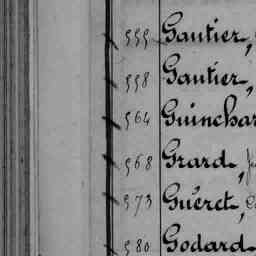 555 Gautier,
558 Gautier,
564 Guinchar
568 Grard,
573 Guéret,
580 Godard